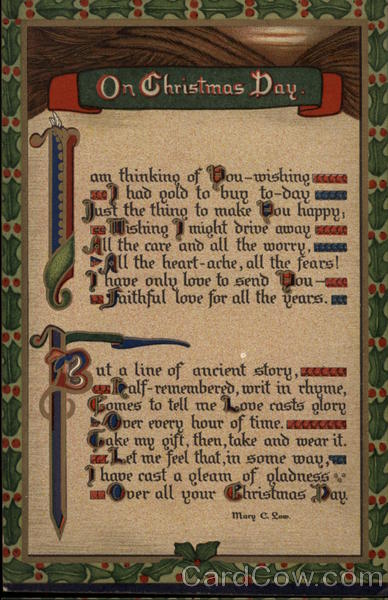 On Christmas Day.
I am thinking of You-wishing
I had gold to buy to-day
Just the thing to make You happy;
Wishing I might drive away
All the care and all the worry,
All the heart-ache, all the fears!
I have only love to send You-
Faithful love for all the years.
But a line of ancient story,
Half-remembered, writ in rhyme,
Comes to tell me Love casts glory
Over every hour of time.
Take my gift, then, take and wear it.
Let me feel that, in some way,
I have cast a gleam of gladness
Over all your Christmas Day
Mary C. Low.
CardCow.com